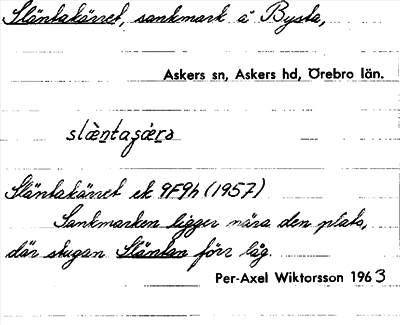 Släntakärret, sankmark å Bysta,
Askers sn, Askers hd, Örebro län.
slæ̀ntaɕæ̀rə
Släntakärret ek 9F9h (1957)
Sankmarken ligger nära den plats,
där stugan Släntan förr låg.
Per-Axel Wiktorsson 1963